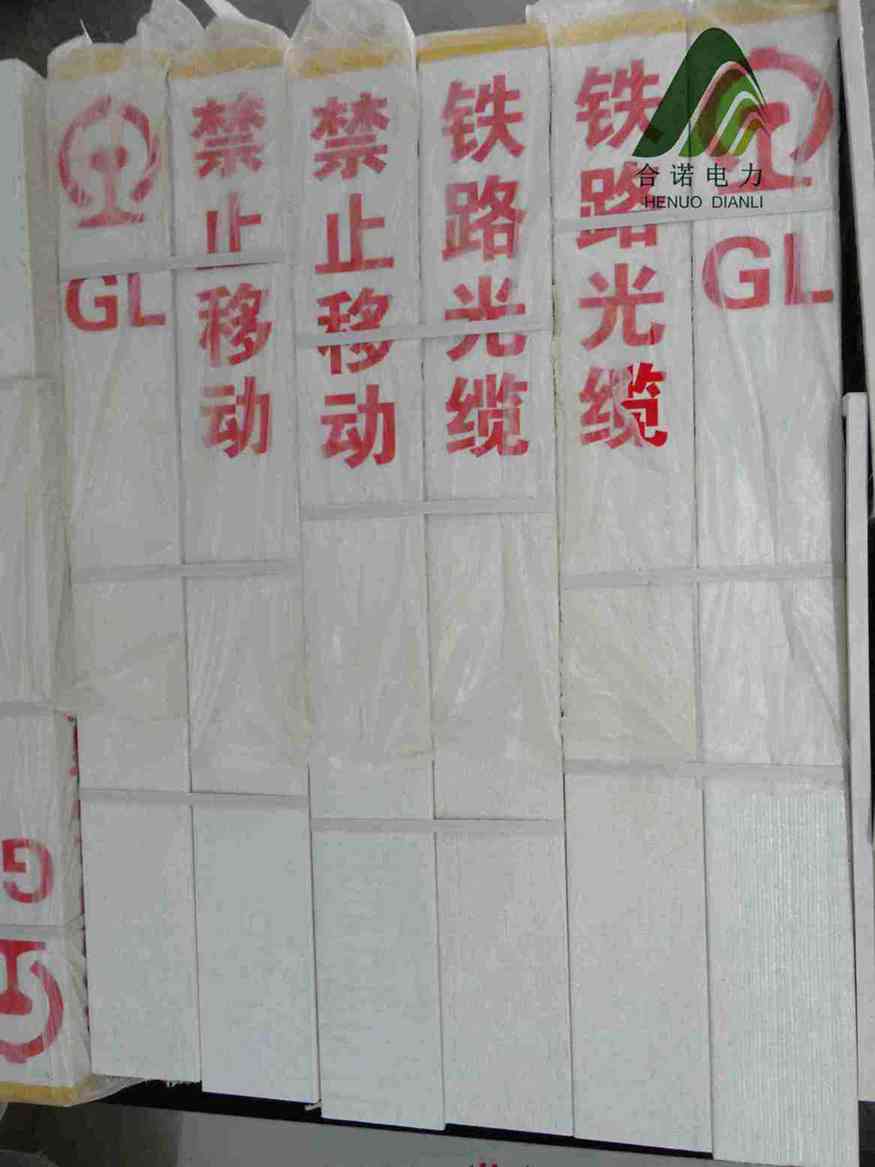 GL
禁止移动
禁止移动
铁路光缆
铁路光缆
GL
合诺电力
HENUO DIANLI
G